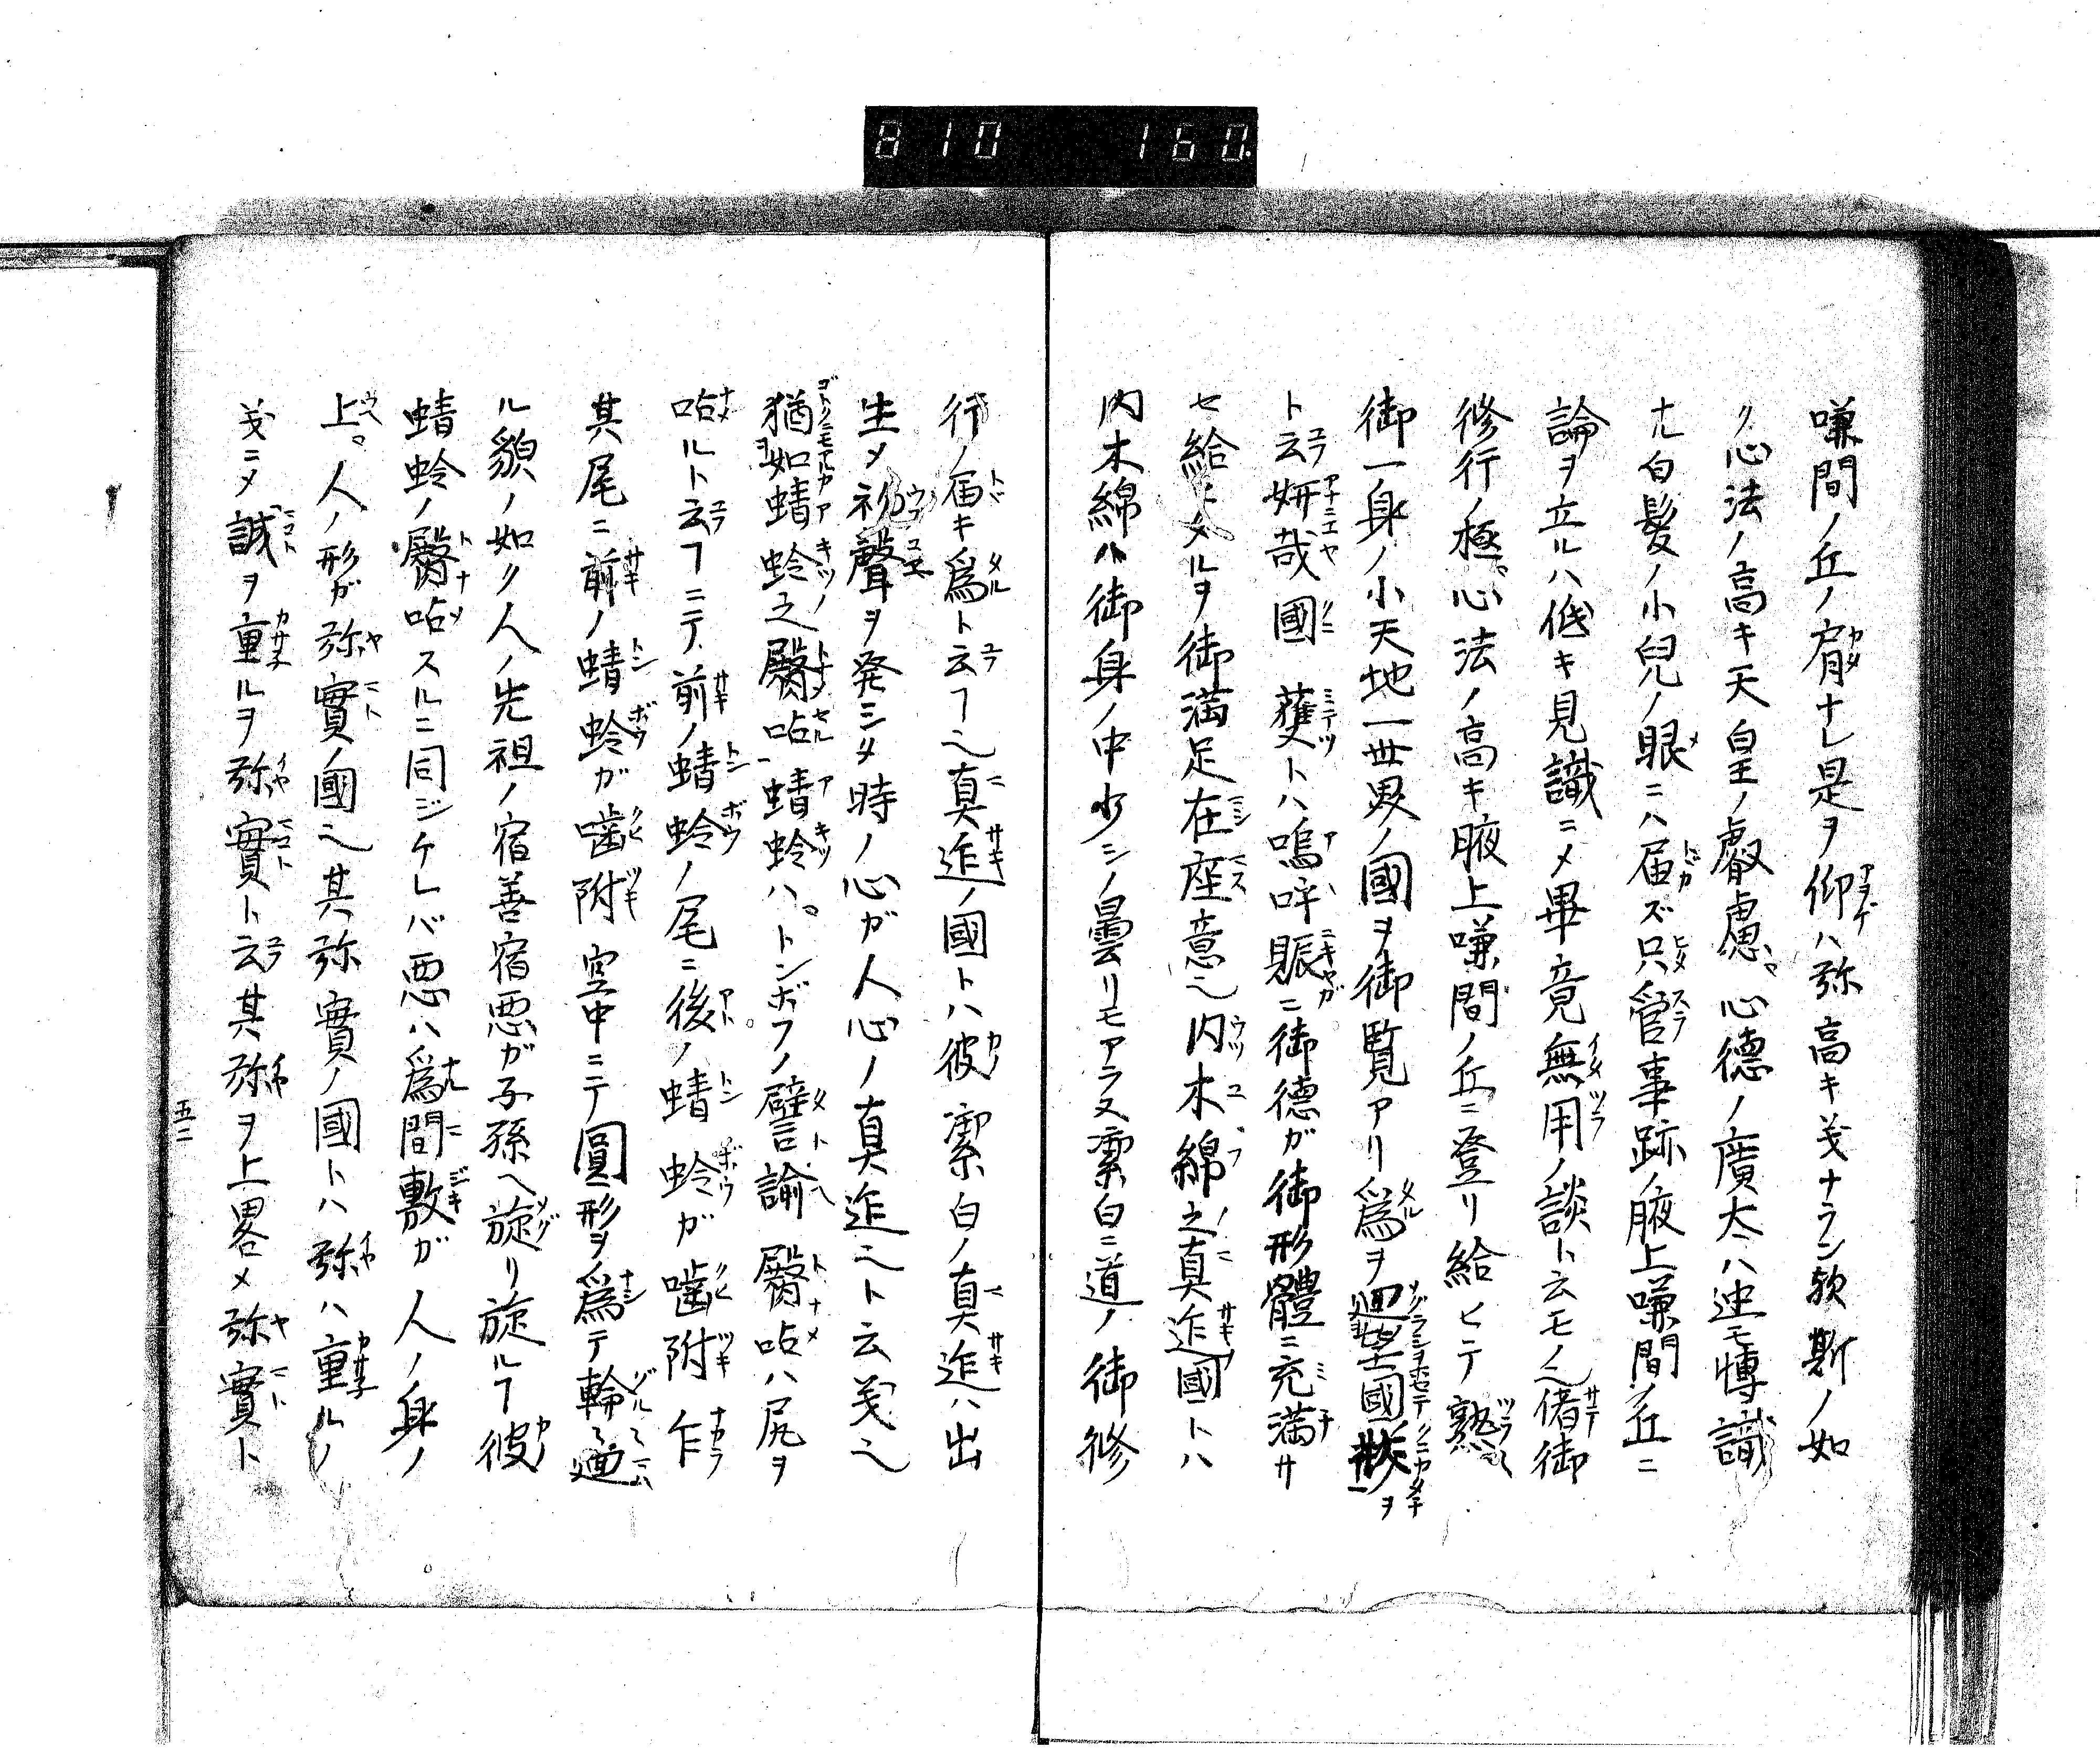 810 160.
嗛間ノ丘ノ脊ナレ是ヲ仰ハ弥高キ𦍌ナラン欤斯ノ如
ク心法ノ高キ天皇ノ叡慮心徳ノ廣太ハ迚モ博識
ナル白髪ノ小兒ノ眼ニハ届ズ只管事跡ノ腋上嗛間ノ丘ニ
論ヲ立ルハ低キ見識ニメ畢竟無用ノ談ト云モノ也偖御
修行ノ極心法ノ高キ腋上嗛間ノ丘ニ登リ給ヒテ熟〻
御一身ノ小天地一世界ノ國ヲ御覧アリ爲ヲ廻望國狀ヲ
ト云妍哉國獲トハ嗚呼賑ニ御徳ガ御形體ニ充満サ
セ給ヒタルヲ御満足在座意也内木綿之真迮國トハ
内木綿ハ御身ノ中少シノ曇リモアラヌ潔白ニ道ノ御修
行ノ届キ爲ト云フ也真迮ノ國トハ彼潔白ノ真迮ハ出
生メ初聲ヲ発シメ時ノ心ガ人心ノ真迮也ト云義也
猶如蜻蛉之臀呫蜻蛉ハトンボフノ譬諭臀呫ハ尻ヲ
呫ルト云フニテ前ノ蜻蛉ノ尾ニ後ノ蜻蛉ガ噛附乍
其尾ニ前ノ蜻蛉ガ噛附空中ニテ圓形ヲ爲テ輪〻廻
ル貌ノ如ク人ノ先祖ノ宿善宿悪ガ子孫ヘ旋リ旋ルフ彼
蜻蛉ノ臀呫スルニ同ジケレバ悪ハ爲間敷ガ人ノ身ノ
上人ノ形ガ弥實ノ國也其弥實ノ國トハ弥ハ重ルノ
義ニメ誠ヲ重ルヲ弥實ト云其弥ヲ上畧メ弥實ト
五二